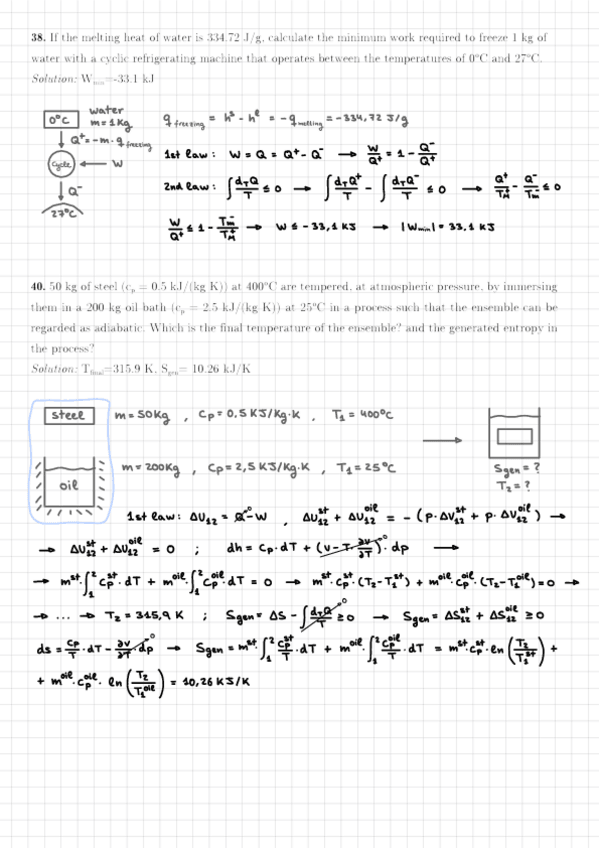 38. If the melting heat of water is 334.72 J/g, calculate the minimum work required to freeze 1 kg of
water with a cyclic refrigerating machine that operates between the temperatures of 0°C and 27°C.
Solution: Wmin=-33.1 kJ
0°C water m = 1Kg
q freezing = hˢ - hˡ = -q melting = -334,72 J/g
Q⁺ = -m · q freezing
Cycle ← W
Q⁻
27°C
1st law: W = Q = Q⁺ - Q⁻ → W/Q⁺ = 1 - Q⁻/Q⁺
2nd law: ∫ dτQ/T ≤ 0 → ∫ dτQ⁺/T - ∫ dτQ⁻/T ≤ 0 → Q⁺/TM⁺ - Q⁻/Tm⁻ ≤ 0
W/Q⁺ ≤ 1 - Tm⁻/TM⁺ → W ≤ -33,1 KJ → |Wmin| = 33,1 KJ
40. 50 kg of steel (cp = 0.5 kJ/(kg K)) at 400°C are tempered, at atmospheric pressure, by immersing
them in a 200 kg oil bath (cp = 2.5 kJ/(kg K)) at 25°C in a process such that the ensemble can be
regarded as adiabatic. Which is the final temperature of the ensemble? and the generated entropy in
the process?
Solution: Tfinal=315.9 K, Sgen= 10.26 kJ/K
steel m = 50Kg , Cp = 0,5 KJ/Kg·K , T1 = 400°C
oil m = 200Kg , Cp = 2,5 KJ/Kg·K , T1 = 25°C
Sgen = ?
T2 = ?
1st law: ΔU12 = Q⁰ - W , ΔU12ˢᵗ + ΔU12ᵒⁱˡ = - (P·ΔV12ˢᵗ + P·ΔV12ᵒⁱˡ) →
→ ΔU12ˢᵗ + ΔU12ᵒⁱˡ = 0 ; dh = Cp·dT + (v - T·∂v/∂T)⁰ · dp →
→ mˢᵗ·∫₁² Cpˢᵗ·dT + mᵒⁱˡ·∫₁² Cpᵒⁱˡ·dT = 0 → mˢᵗ·Cpˢᵗ·(T2 - T1ˢᵗ) + mᵒⁱˡ·Cpᵒⁱˡ·(T2 - T1ᵒⁱˡ) = 0 →
→ ... → T2 = 315,9 K ; Sgen = ΔS - ∫ dτQ/T⁰ ≥ 0 → Sgen = ΔS12ˢᵗ + ΔS12ᵒⁱˡ ≥ 0
ds = Cp/T · dT - ∂v/∂T · dp⁰ → Sgen = mˢᵗ·∫₁² Cpˢᵗ/T · dT + mᵒⁱˡ·∫₁² Cpᵒⁱˡ/T · dT = mˢᵗ·Cpˢᵗ·ln (T2/T1ˢᵗ) +
+ mᵒⁱˡ·Cpᵒⁱˡ· ln (T2/T1ᵒⁱˡ) = 10,26 KJ/K